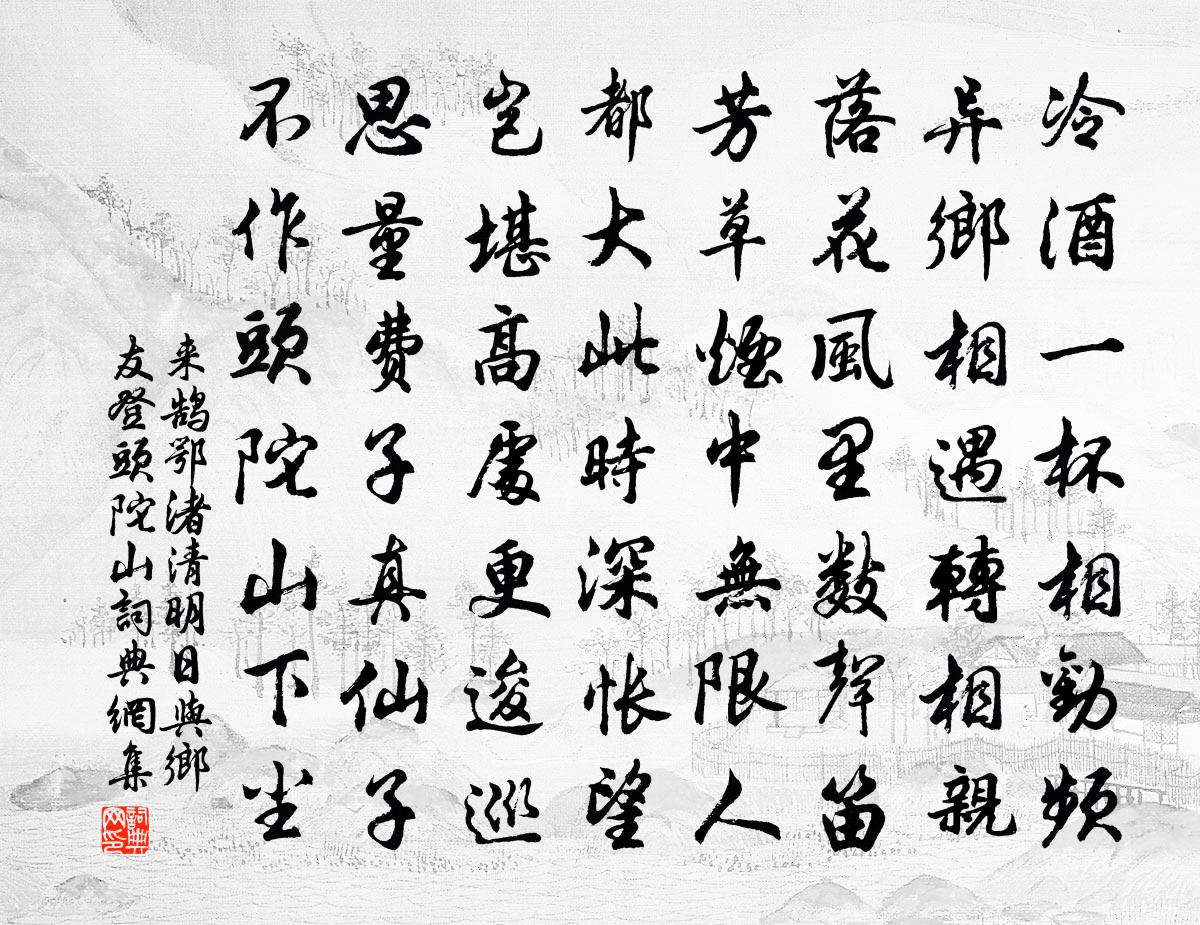 冷酒一杯相勸頻
異鄉相遇轉相親
落花風里數聲笛
芳草煙中無限人
都大此時深悵望
豈堪高處更逡巡
思量費子真仙子
不作頭陀山下塵
来鹄鄂渚清明日與鄉
友登頭陀山詞典網集
詞典
网印